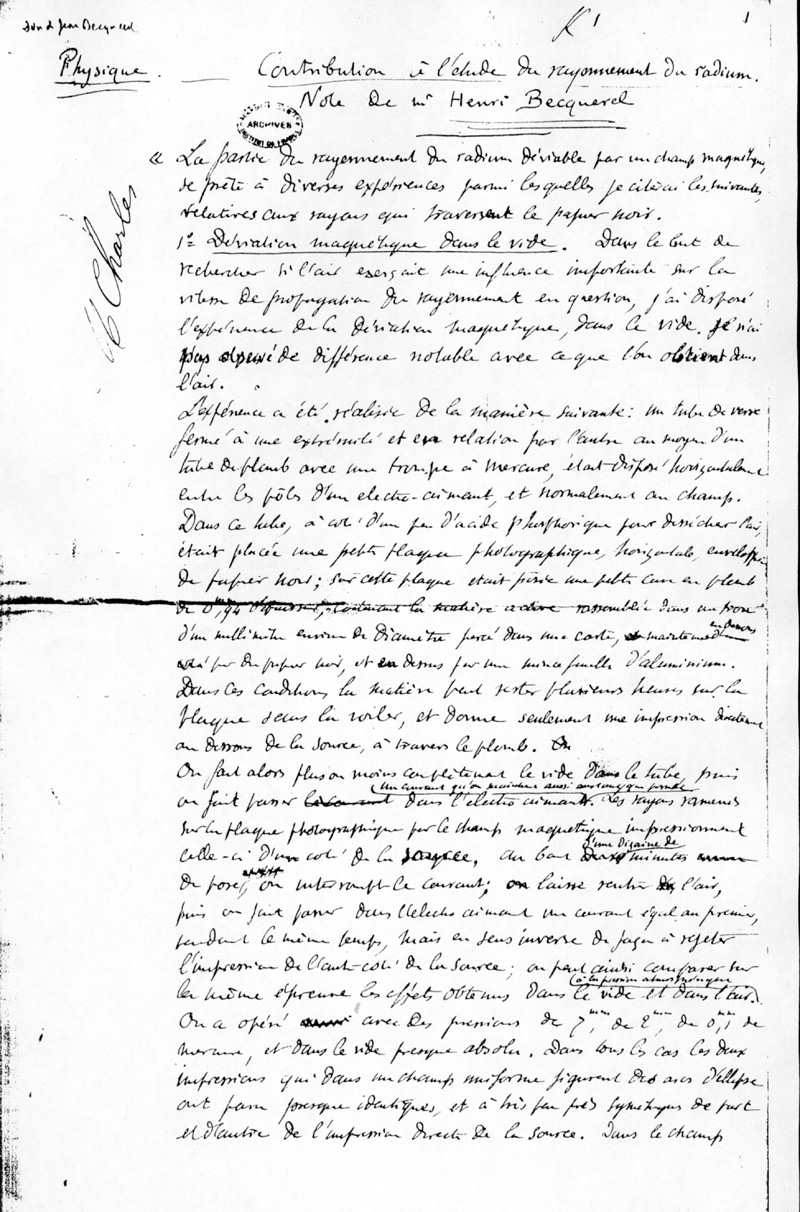 Don de Jean Becquerel
1
1
Physique. Contribution à l'étude du rayonnement du radium.
Note de Mr Henri Becquerel
ARCHIVES
Charles
« La partie du rayonnement du radium déviable par un champ magnétique,
se prête à diverses expériences parmi lesquelles je citerai les suivantes,
relatives aux rayons qui traversent le papier noir.
1º Déviation magnétique dans le vide. Dans le but de
rechercher si l'air exerçait une influence importante sur la
vitesse de propagation du rayonnement en question, j'ai disposé
l'expérience de la déviation magnétique, dans le vide. Je n'ai
pas observé de différence notable avec ce que l'on obtient dans
l'air.
L'expérience a été réalisée de la manière suivante: un tube de verre
fermé à une extrémité et en relation par l'autre au moyen d'un
tube de plomb avec une trompe à mercure, était disposé horizontalement
entre les pôles d'un electro-aimant, et normalement au champ.
Dans ce tube, à coté d'un peu d'acide phosphorique pour dessécher l'air,
était placée une petite plaque photographique, horizontale, enveloppée
de papier noir; sur cette plaque était posée une petite cuve en plomb
de 0mm,94 d'épaisseur, contenant la matière active rassemblée dans un trou
en dessous
d'un millimètre environ de diamètre percé dans une carte, maintenue
par du papier noir, et en dessus par une mince feuille d'aluminium.
Dans ces conditions la matière peut rester plusieurs heures sur la
plaque sans la voiler, et donne seulement une impression directement
au dessous de la source, à travers le plomb. On
On fait alors plus ou moins complètement le vide dans le tube, puis
un courant qu'on maintient aussi
on fait passer le courant dans l'electro aimant. Les rayons ramenés
sur la plaque photographique par le champ magnétique impressionnent
d'une dizaine de
celle-ci d'un coté de la source, au bout minutes
de pose, on interrompt le courant; on laisse rentrer l'air,
puis on fait passer dans l'electro aimant un courant égal au premier,
pendant le même temps, mais en sens inverse de façon à rejeter
l'impression de l'autre coté de la source; on peut ainsi comparer sur
à la pression atmosphérique
la même épreuve les effets obtenus dans le vide et dans l'air.
On a opéré avec des pressions de 7mm, de 2mm, de 0mm,1 de
mercure, et dans le vide presque absolu. Dans tous les cas les deux
impressions qui dans un champ uniforme figurent des arcs d'ellipse
ont paru presque identiques, et à très peu près symétriques de part
et d'autre de l'impression directe de la source. Dans le champ